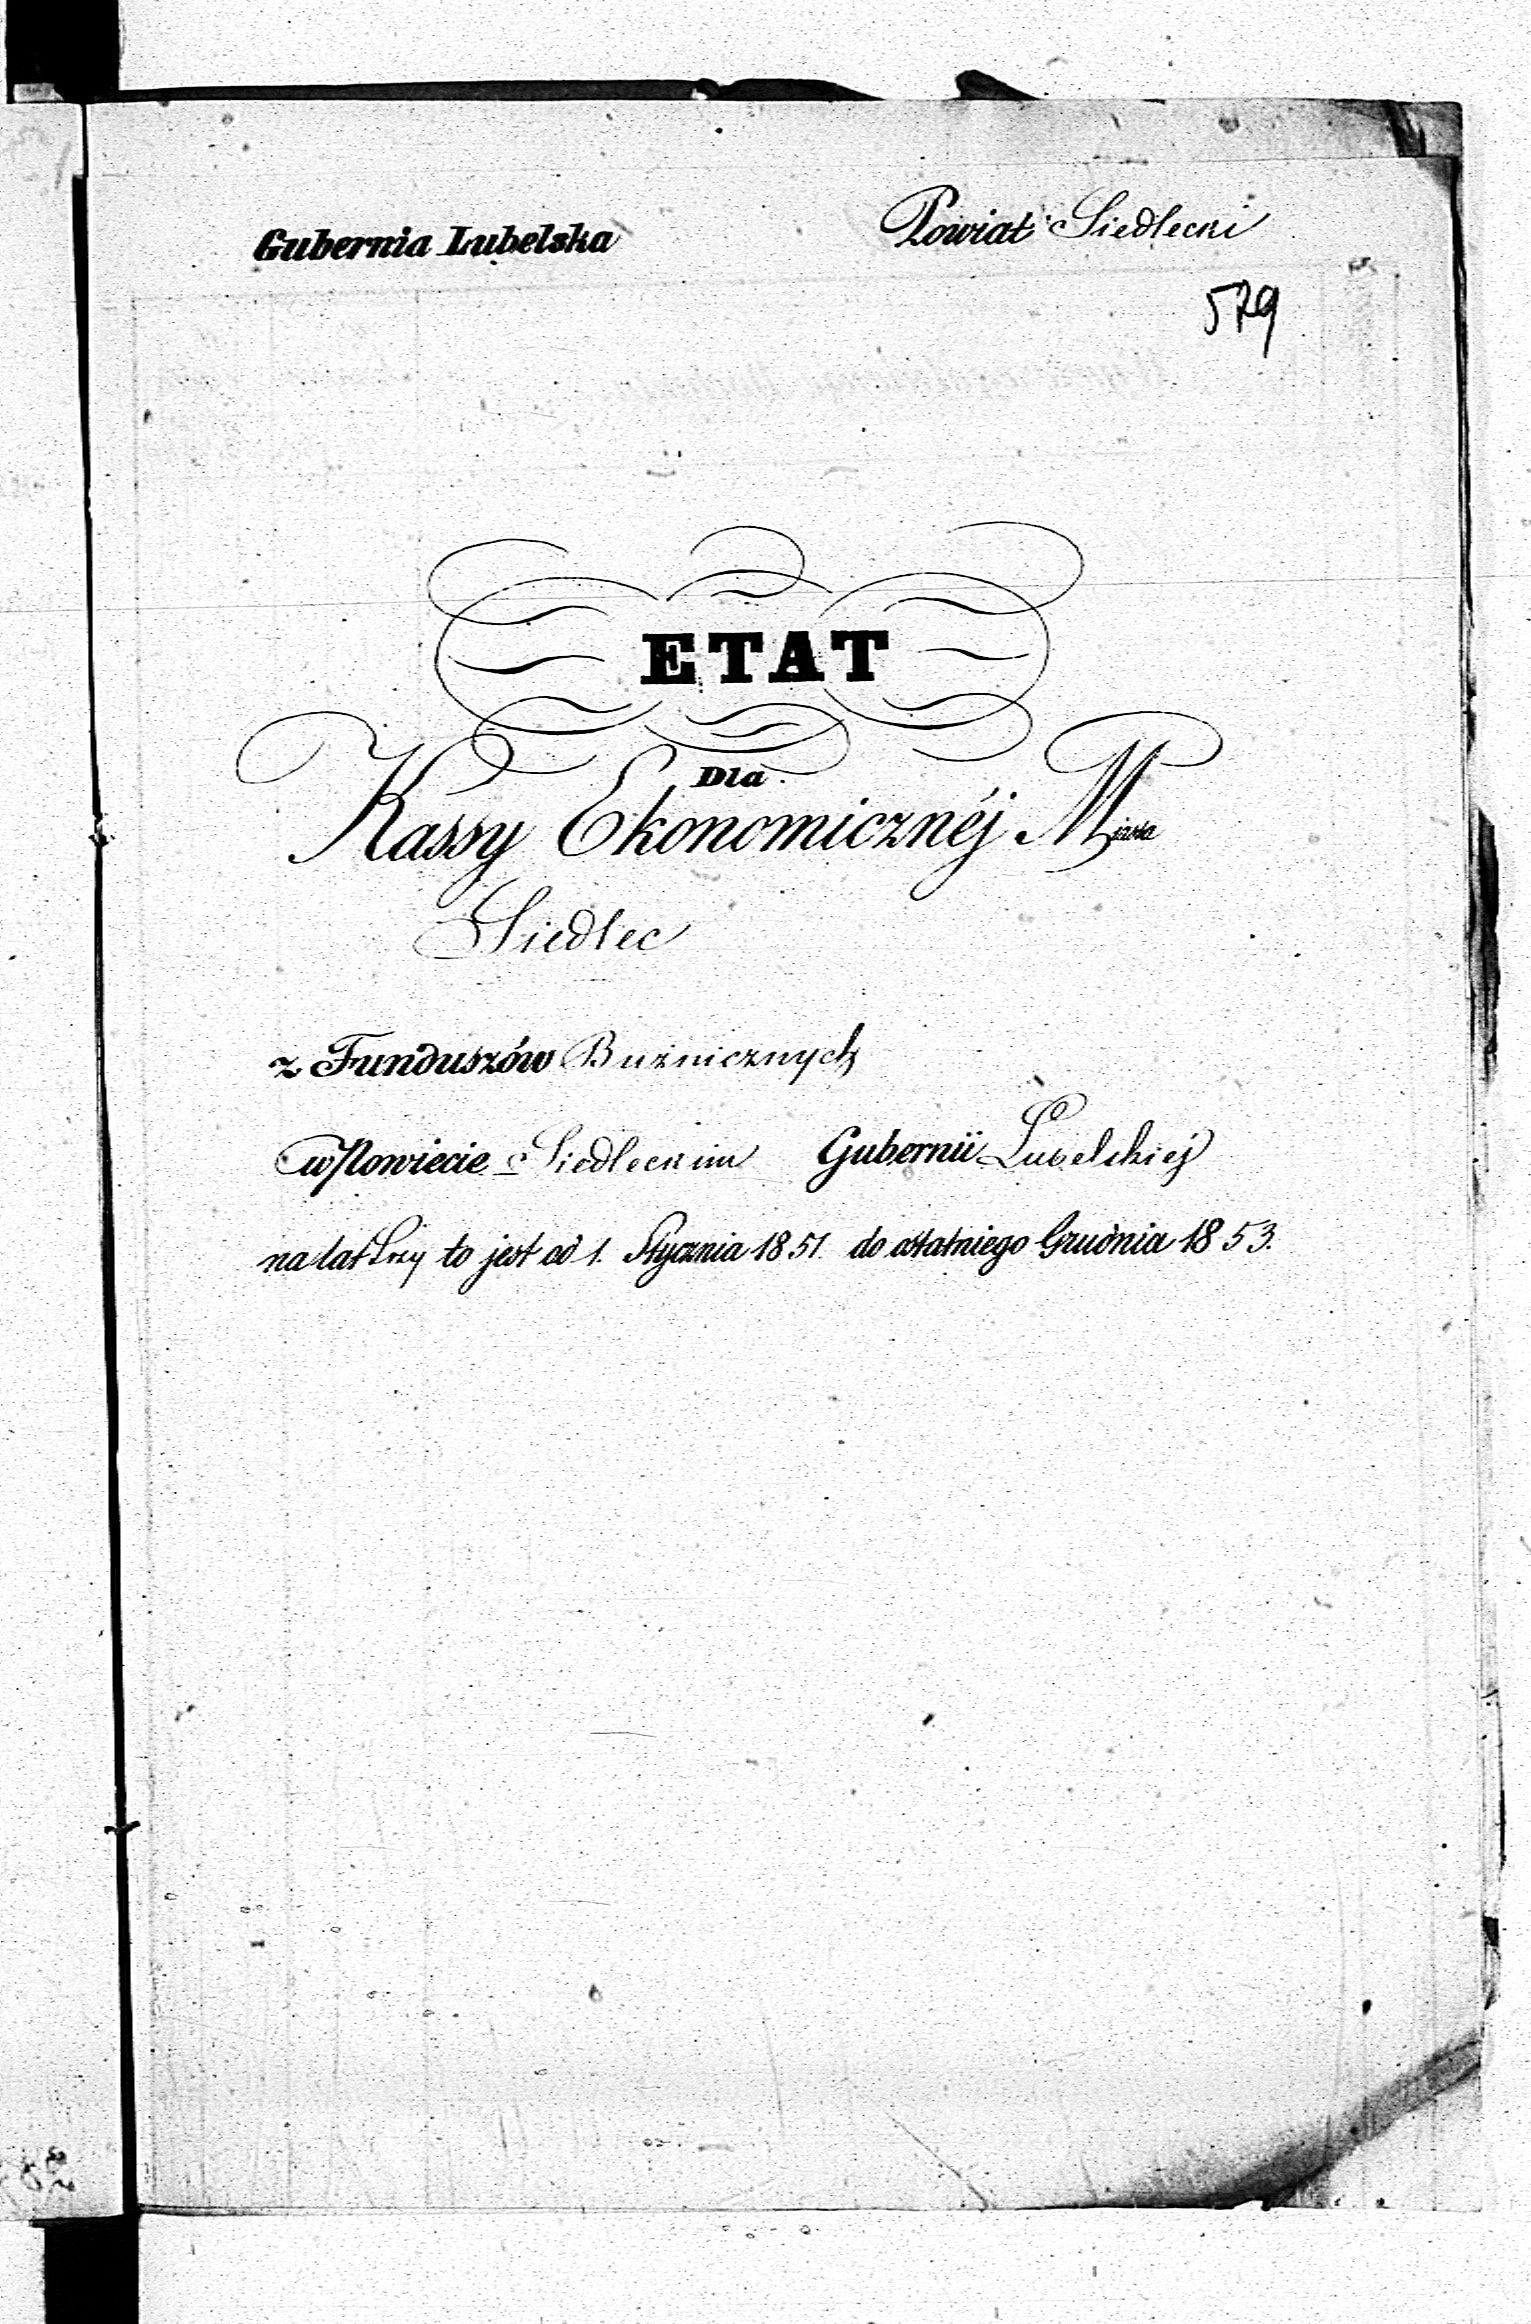 Gubernia Lubelska Powiat Siedlecki
579
ETAT
Dla
Kassy Ekonomicznéj Miasta
Siedlec
z Funduszów Bużnicznych
w Powiecie Siedleckim Gubernii Lubelskiéj
na lat trzy to jest od 1. Stycznia 1851 do ostatniego Grudnia 1853.